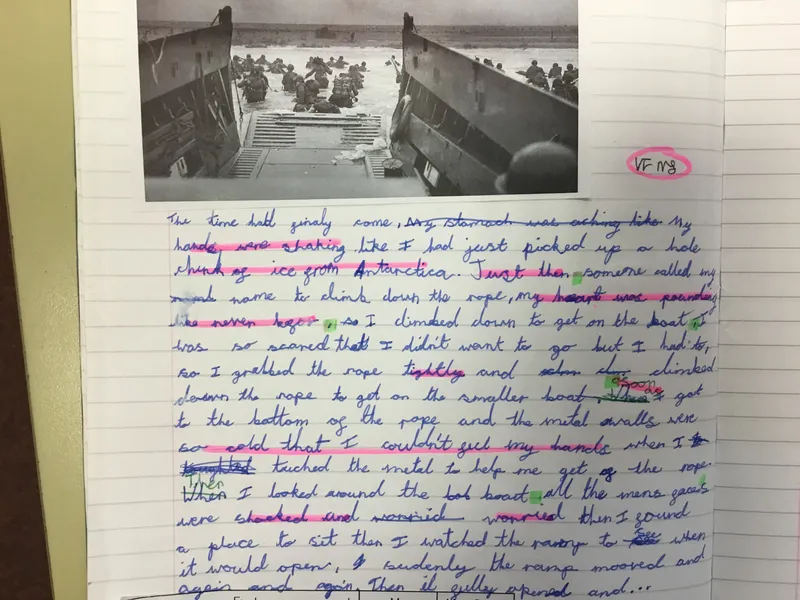 VF
The time had finaly come, My stomach was aching like My
hands were shaking like I had just picked up a hole
chunk of ice from Antarctica. Just then, someone called my
name to climb down the rope, my heart was pounding
like never befor, so I climbed down to get on the boat, I
was so scared that I didn't want to go but I had to,
so I grabbed the rope tightly and climbed
down the rope to get on the smaller boat, When as soon as I got
to the bottom of the rope and the metal walls were
so cold that I couldn't feel my hands when I
touched the metal to help me get of the rope.
Then
When I looked around the boat, all the mens faces
were shocked and worried worried then I found
a place to sit then I watched the ramp to see when
it would open, suddenly the ramp mooved and
again and again, Then it fully opened and...